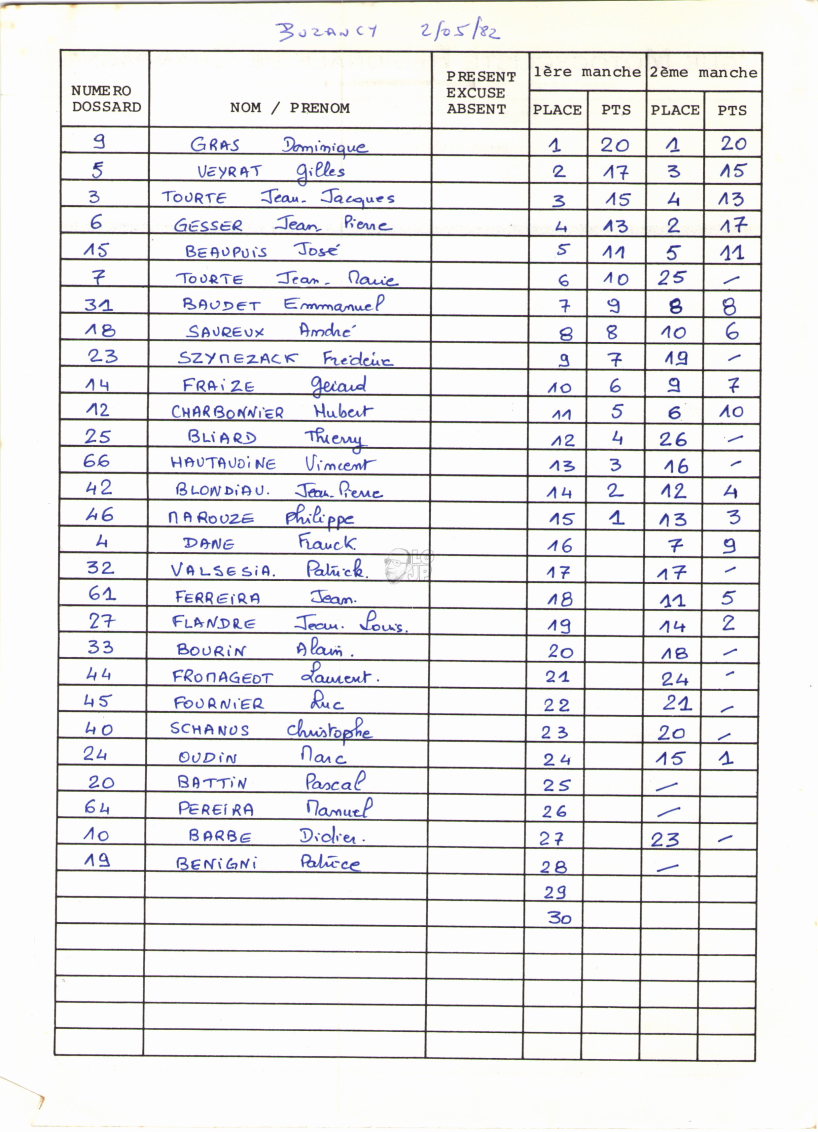 BUZANCY 2/05/82
NUMERO DOSSARD NOM / PRENOM PRESENT EXCUSE ABSENT 1ère manche 2ème manche
PLACE PTS PLACE PTS
9 GRAS Dominique 1 20 1 20
5 VEYRAT Gilles 2 17 3 15
3 TOURTE Jean-Jacques 3 15 4 13
6 GESSER Jean Pierre 4 13 2 17
15 BEAUPUIS José 5 11 5 11
7 TOURTE Jean-Marie 6 10 25 -
31 BAUDET Emmanuel 7 9 8 8
18 SAUREUX André 8 8 10 6
23 SZYMEZACK Frédéric 9 7 19 -
14 FRAIZE Gérard 10 6 9 7
12 CHARBONNIER Hubert 11 5 6 10
25 BLIARD Thierry 12 4 26 -
66 HAUTAUDINE Vincent 13 3 16 -
42 BLONDIAU. Jean-Pierre 14 2 12 4
46 MAROUZE Philippe 15 1 13 3
4 DANE Franck. 16 7 9
32 VALSESIA. Patrick. 17 17 -
61 FERREIRA Jean. 18 11 5
27 FLANDRE Jean. Louis. 19 14 2
33 BOURIN Alain. 20 18 -
44 FROMAGEOT Laurent. 21 24 -
45 FOURNIER Luc 22 21 -
40 SCHANUS Christophe 23 20 -
24 OUDIN Marc 24 15 1
20 BATTIN Pascal 25 -
64 PEREIRA Manuel 26 -
10 BARBE Didier. 27 23 -
19 BENIGNI Patrice 28 -
29
30
LG
JP